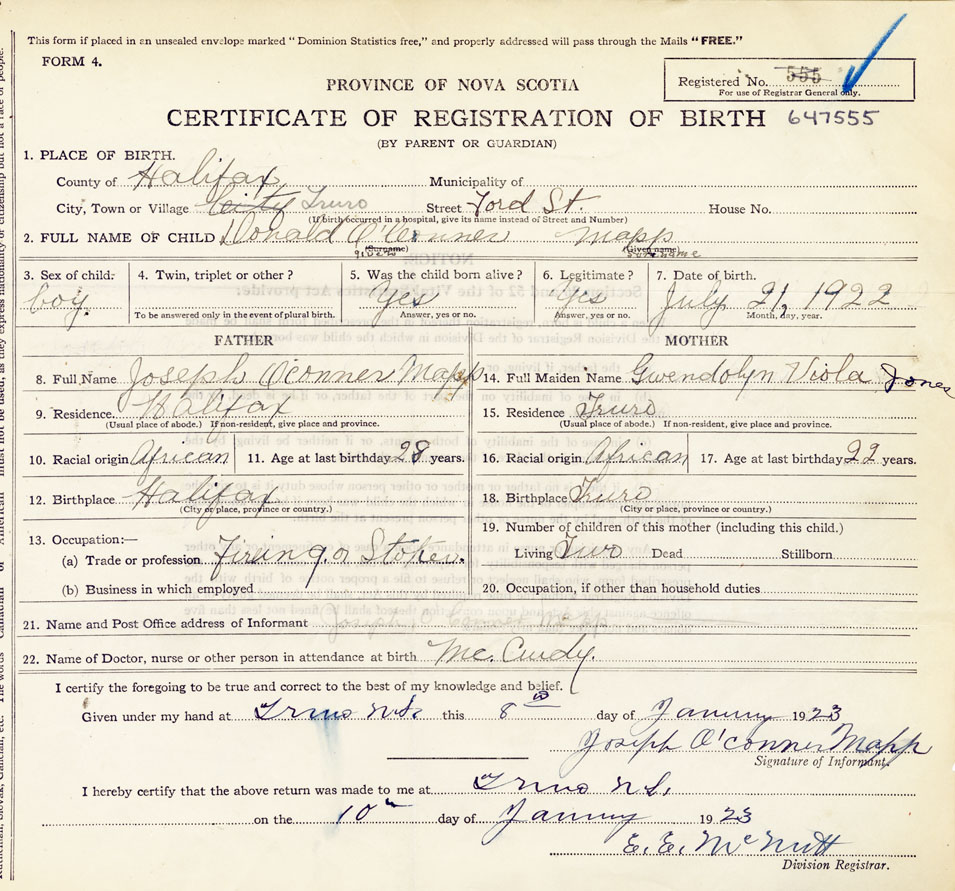 This form if placed in an unsealed envelope marked "Dominion Statistics free," and properly addressed will pass through the Mails "FREE."
FORM 4.
Registered No. 555
For use of Registrar General only.
PROVINCE OF NOVA SCOTIA
CERTIFICATE OF REGISTRATION OF BIRTH 647555
(BY PARENT OR GUARDIAN)
1. PLACE OF BIRTH.
County of Halifax Municipality of
City, Town or Village City Truro Street Ford St. House No.
(If birth occurred in a hospital, give its name instead of Street and Number)
2. FULL NAME OF CHILD Donald O'Conner Mapp
(Surname) given (Given name) surname
3. Sex of child. 4. Twin, triplet or other? 5. Was the child born alive? 6. Legitimate? 7. Date of birth.
boy. Yes Yes July 21, 1922
To be answered only in the event of plural birth. Answer, yes or no. Answer, yes or no. Month, day, year.
FATHER MOTHER
8. Full Name Joseph O'Conner Mapp 14. Full Maiden Name Gwendolyn Viola Jones
9. Residence. Halifax 15. Residence Truro
(Usual place of abode.) If non-resident, give place and province. (Usual place of abode.) If non-resident, give place and province.
10. Racial origin African 11. Age at last birthday 28 years. 16. Racial origin African 17. Age at last birthday 22 years.
12. Birthplace Halifax 18. Birthplace Truro
(City or place, province or country.) (City or place, province or country.)
19. Number of children of this mother (including this child.)
13. Occupation:—
(a) Trade or profession Firing. a Stoker. Living Two Dead Stillborn
(b) Business in which employed 20. Occupation, if other than household duties
21. Name and Post Office address of Informant Joseph O'Conner Mapp
22. Name of Doctor, nurse or other person in attendance at birth Mc. Curdy.
I certify the foregoing to be true and correct to the best of my knowledge and belief.
Given under my hand at Truro N.S. this 8th day of January 1923
Joseph O'conner Mapp
Signature of Informant.
I hereby certify that the above return was made to me at Truro N.S.
on the 10th day of January 1923
E. E. McNutt
Division Registrar.